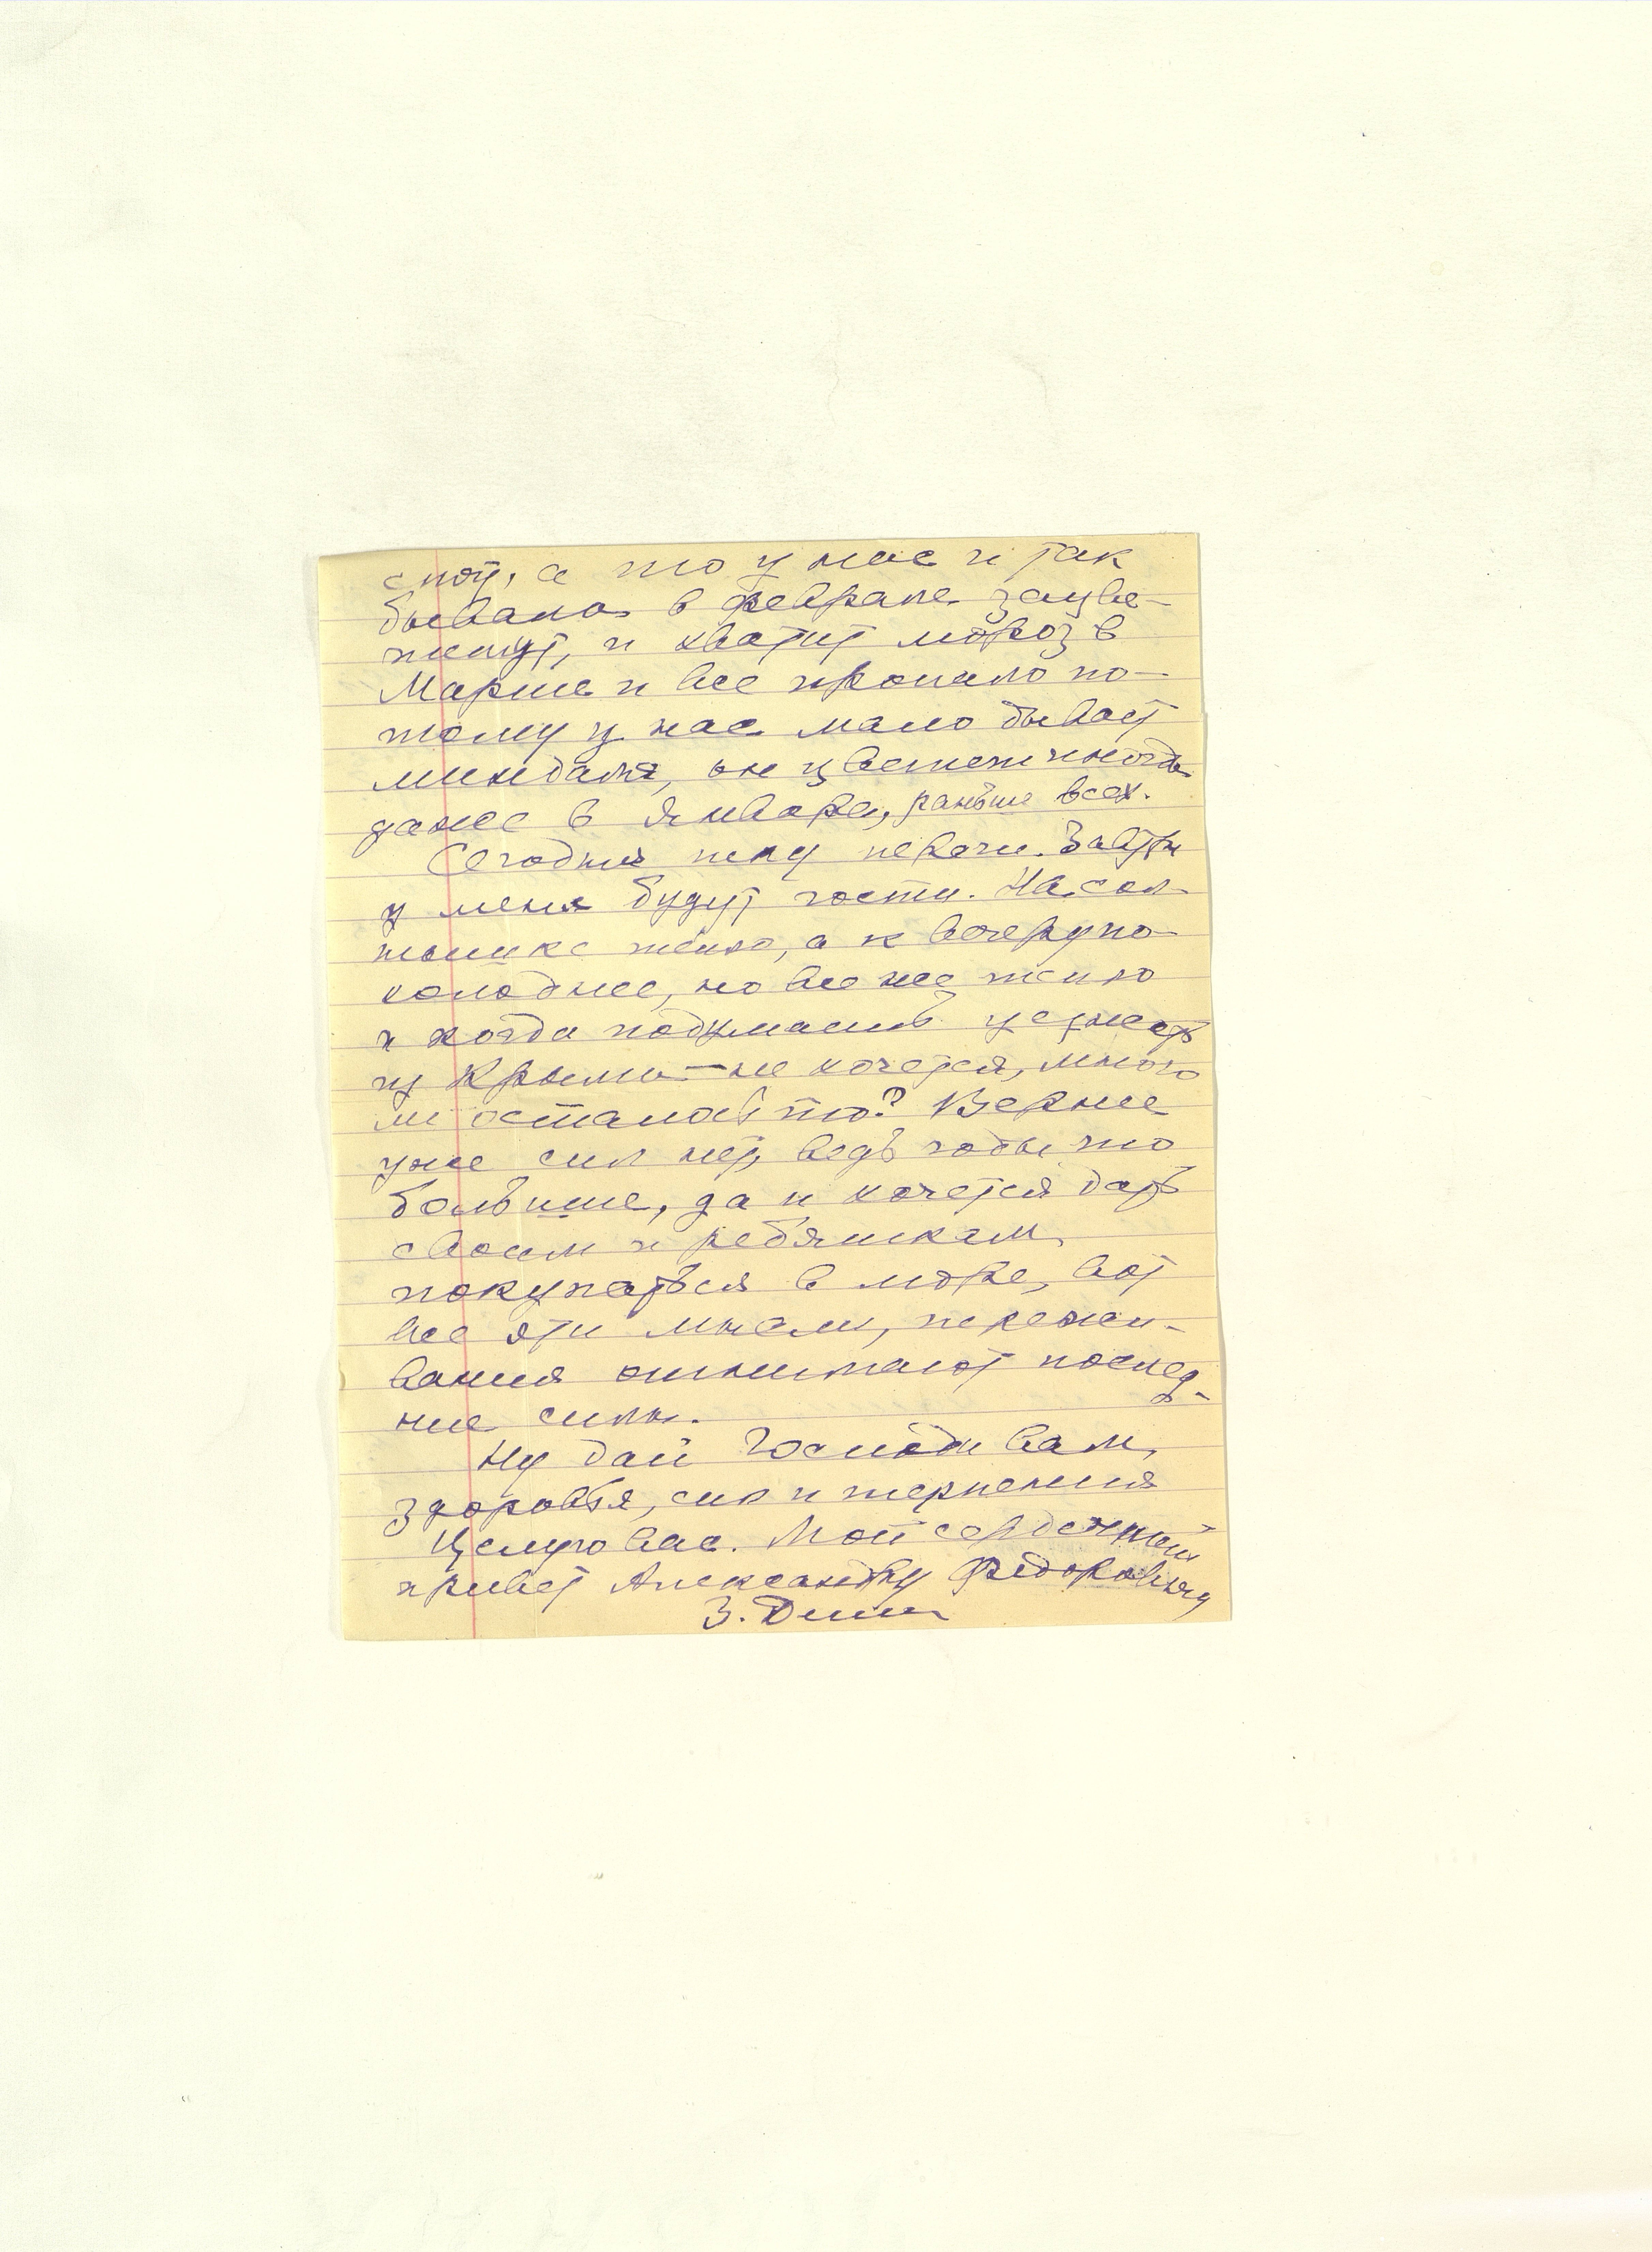 спят, а то у нас и так
бывало в феврале зацве-
тут, и хватит мороз в
Марте и все пропало по-
тому у нас мало бывает
миндаля, он цветет иногда
даже в Январе, раньше всех.
Сегодня пеку печен. Завтра
у меня будут гости. На сол-
нышке тепло, а к вечеру по-
холоднее, но все же тепло
и когда подумаешь уезжать
из Крыма — не хочется, много
ли осталось то? Вернее
уже сил нет, ведь годы то
большие, да и хочется дать
своим и ребятишкам
покупаться в море, вот
все эти мысли, пережи-
вания отнимают послед-
ние силы.
Ну дай Господи вам,
здоровья, сил и терпения
Целую вас. Мой сердечный
привет Александру Федоровичу
З.